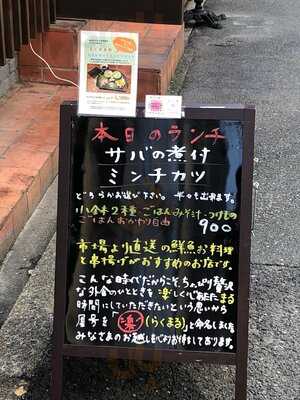 本日のランチ
サバの煮付
ミンチカツ
どちらかお選び下さい。
小鉢2種 ごはん みそ汁 つけもの
ごはんおかわり自由
900
市場より直送の鮮魚お料理
と串揚げがおすすめのお店です。
こんな時代だからこそ、ちょっぴり贅沢
な外食のひとときを楽しく心和まる
時間にしていただきたいという思いから
屋号を 楽 (らくまる) と命名しました
みなさまのお越し心よりお待ちしております。